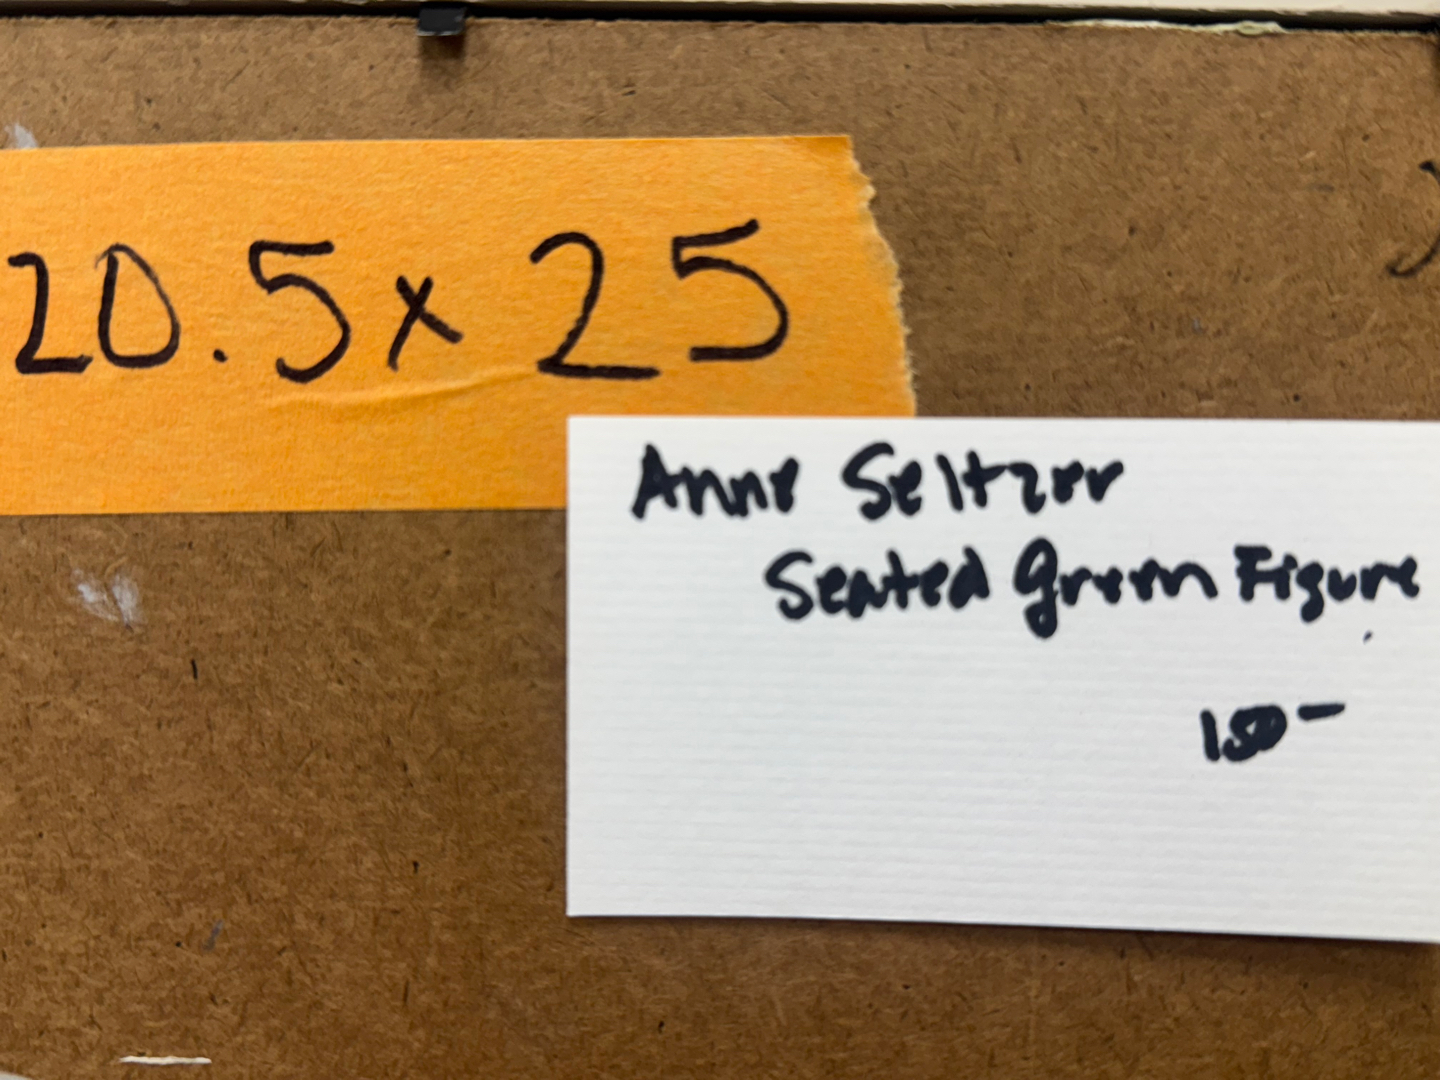 20.5 x 25
Anne Seltzer
Seated Green Figure
150-